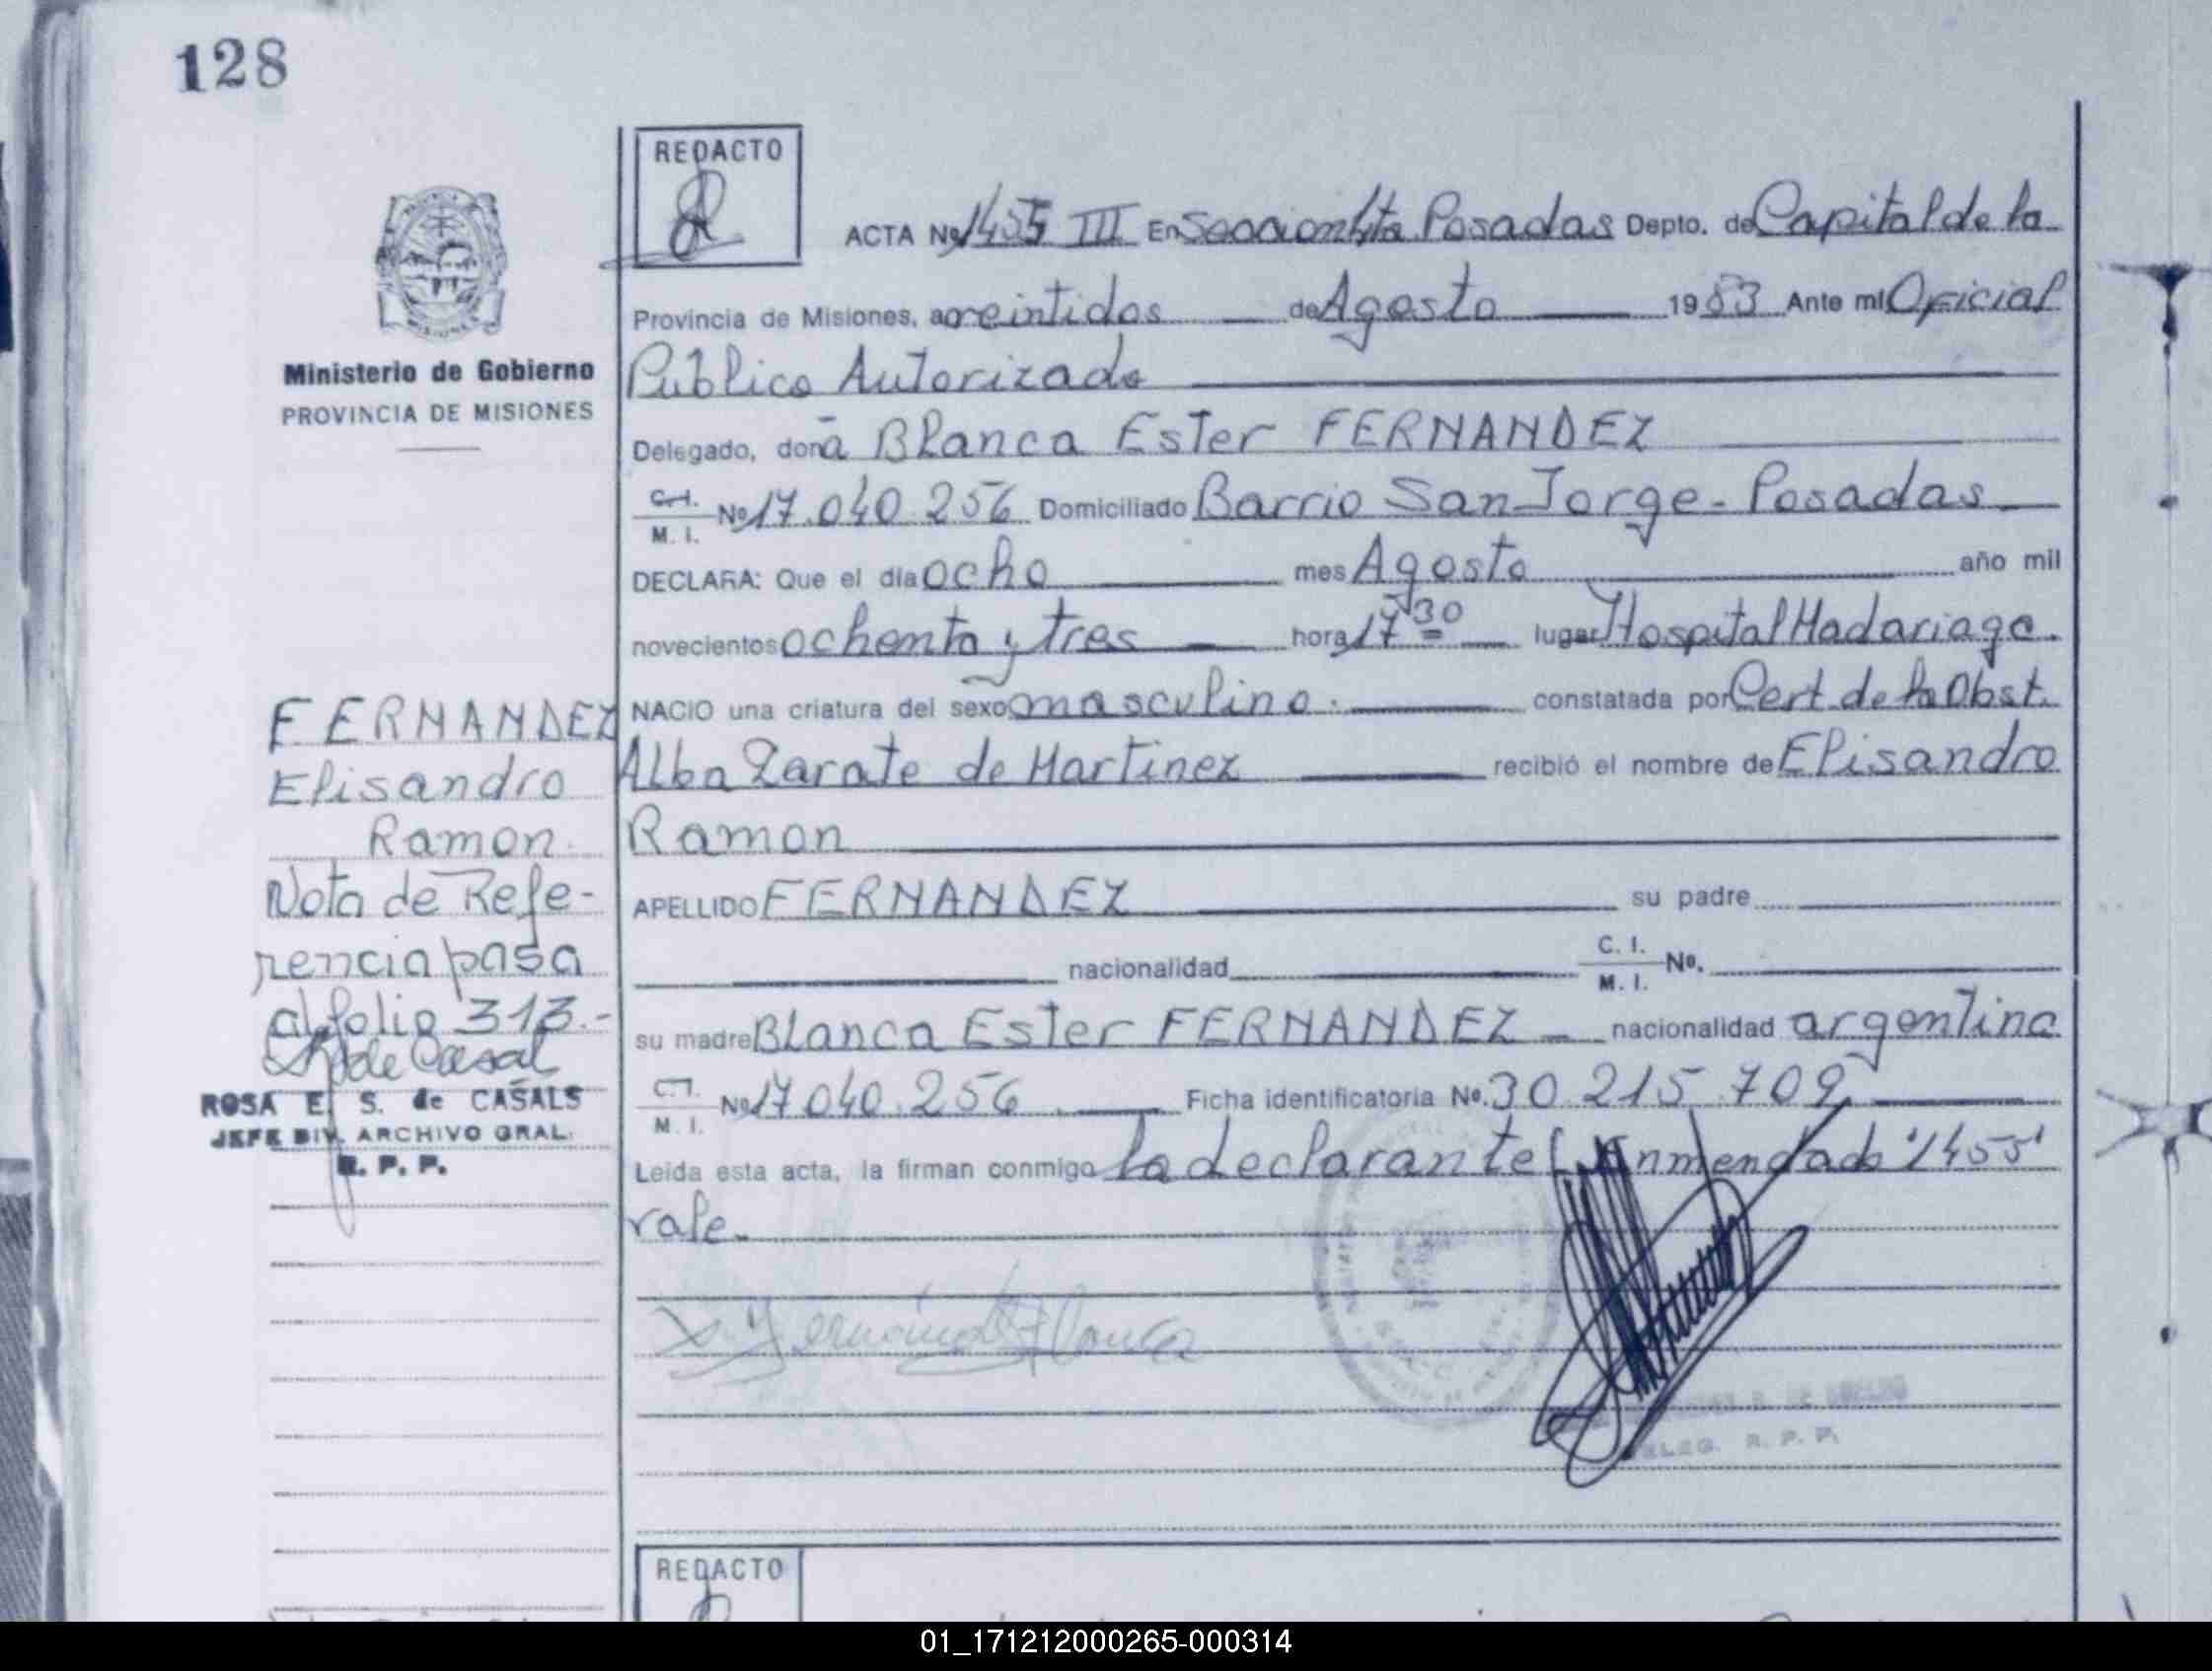 128
REDACTO
ACTA Nº 1455 III En Seccion 4ta Posadas Depto. de Capital de la
Provincia de Misiones, a veintidos de Agosto 1983 Ante mi Oficial
Publico Autorizado
Ministerio de Gobierno
PROVINCIA DE MISIONES
Delegado, doña Blanca Ester FERNANDEZ
C.I.
M. I. Nº 17.040.256 Domiciliado Barrio San Jorge - Posadas
DECLARA: Que el día ocho mes Agosto año mil
novecientos ochenta y tres hora 17 30 lugar Hospital Madariaga.
NACIO una criatura del sexo masculino. constatada por Cert. de la Obst.
Alba Zarate de Martinez recibió el nombre de Elisandro
Ramon
APELLIDO FERNANDEZ su padre
nacionalidad C. I.
M. I. Nº.
su madre Blanca Ester FERNANDEZ nacionalidad argentina
C.I.
M. I. Nº 17.040.256. Ficha identificatoria Nº. 30.215.709
Leida esta acta, la firman conmigo la declarante Enmendado "1455"
vale.
FERNANDEZ
Elisandro
Ramon
Nota de Refe-
rencia pasa
al folio 313.-
S. de Casal
ROSA E. S. de CASALS
JEFE DIV. ARCHIVO GRAL.
R. P. P.
Fernandez Blanca
DELEG. R. P. P.
REDACTO
01_171212000265-000314